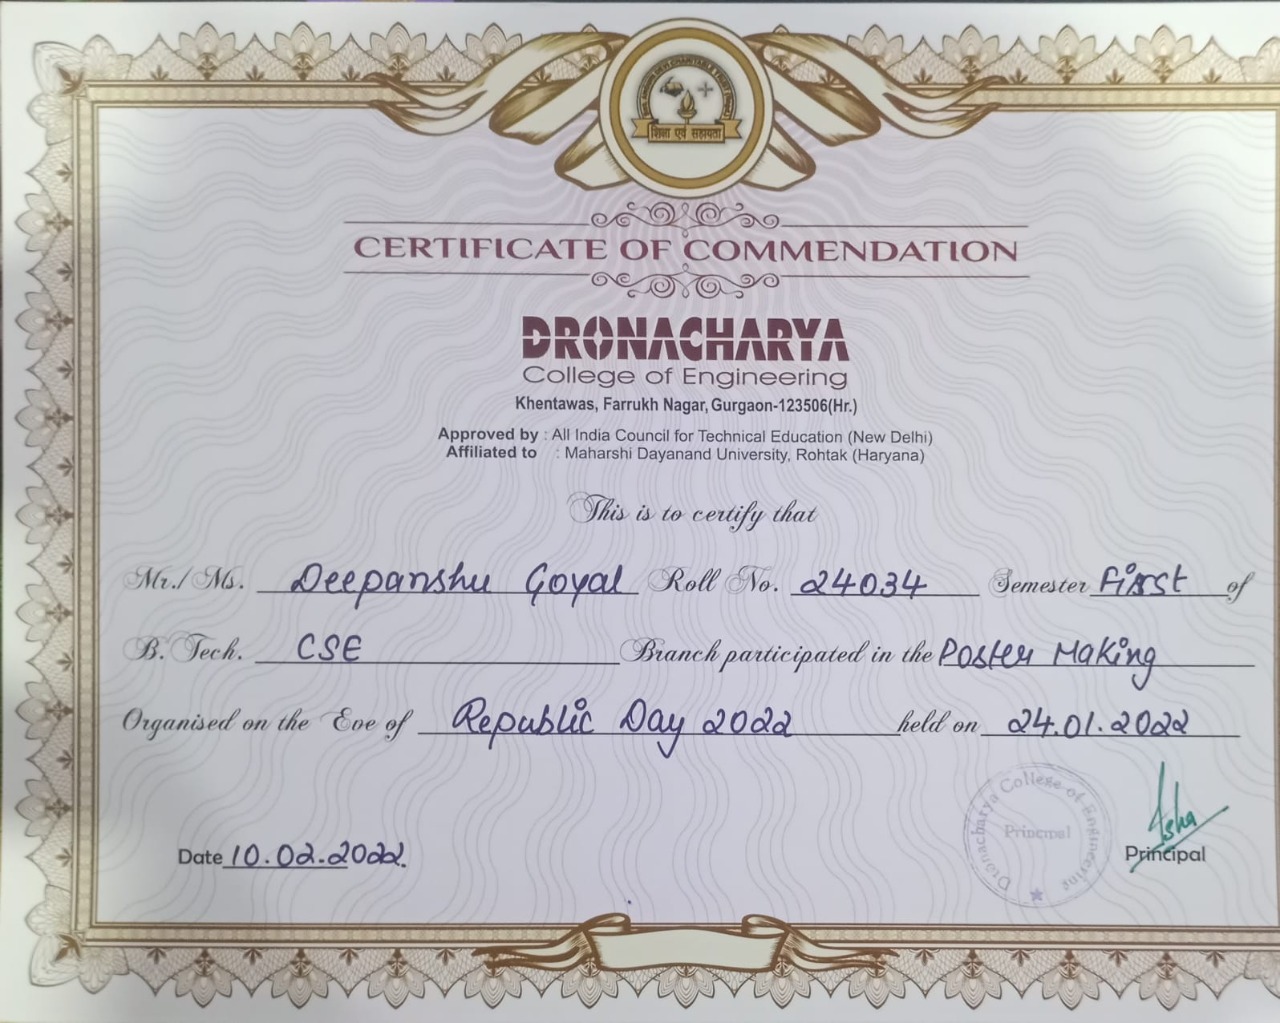 शिक्षा एवं सहायता
CERTIFICATE OF COMMENDATION
DRONACHARYA
College of Engineering
Khentawas, Farrukh Nagar, Gurgaon-123506(Hr.)
Approved by : All India Council for Technical Education (New Delhi)
Affiliated to : Maharshi Dayanand University, Rohtak (Haryana)
This is to certify that
Mr./Ms. Deepanshu Goyal Roll No. 24034 Semester First of
B. Tech. CSE Branch participated in the Poster Making
Organised on the Eve of Republic Day 2022 held on 24.01.2022
Dronacharya College of Engineering
Principal
Asha
Date 10.02.2022.
Principal